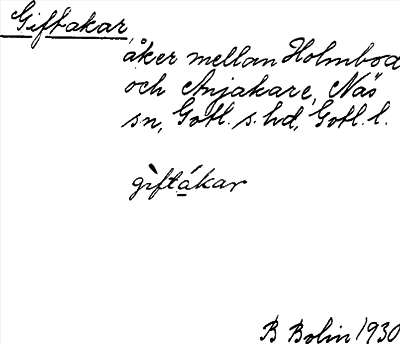 Giftakar,
åker mellan Holmbod
och Anjakare, Näs
sn, Gotl. s. hd, Gotl. l.
gìftákar
B Bolin 1930